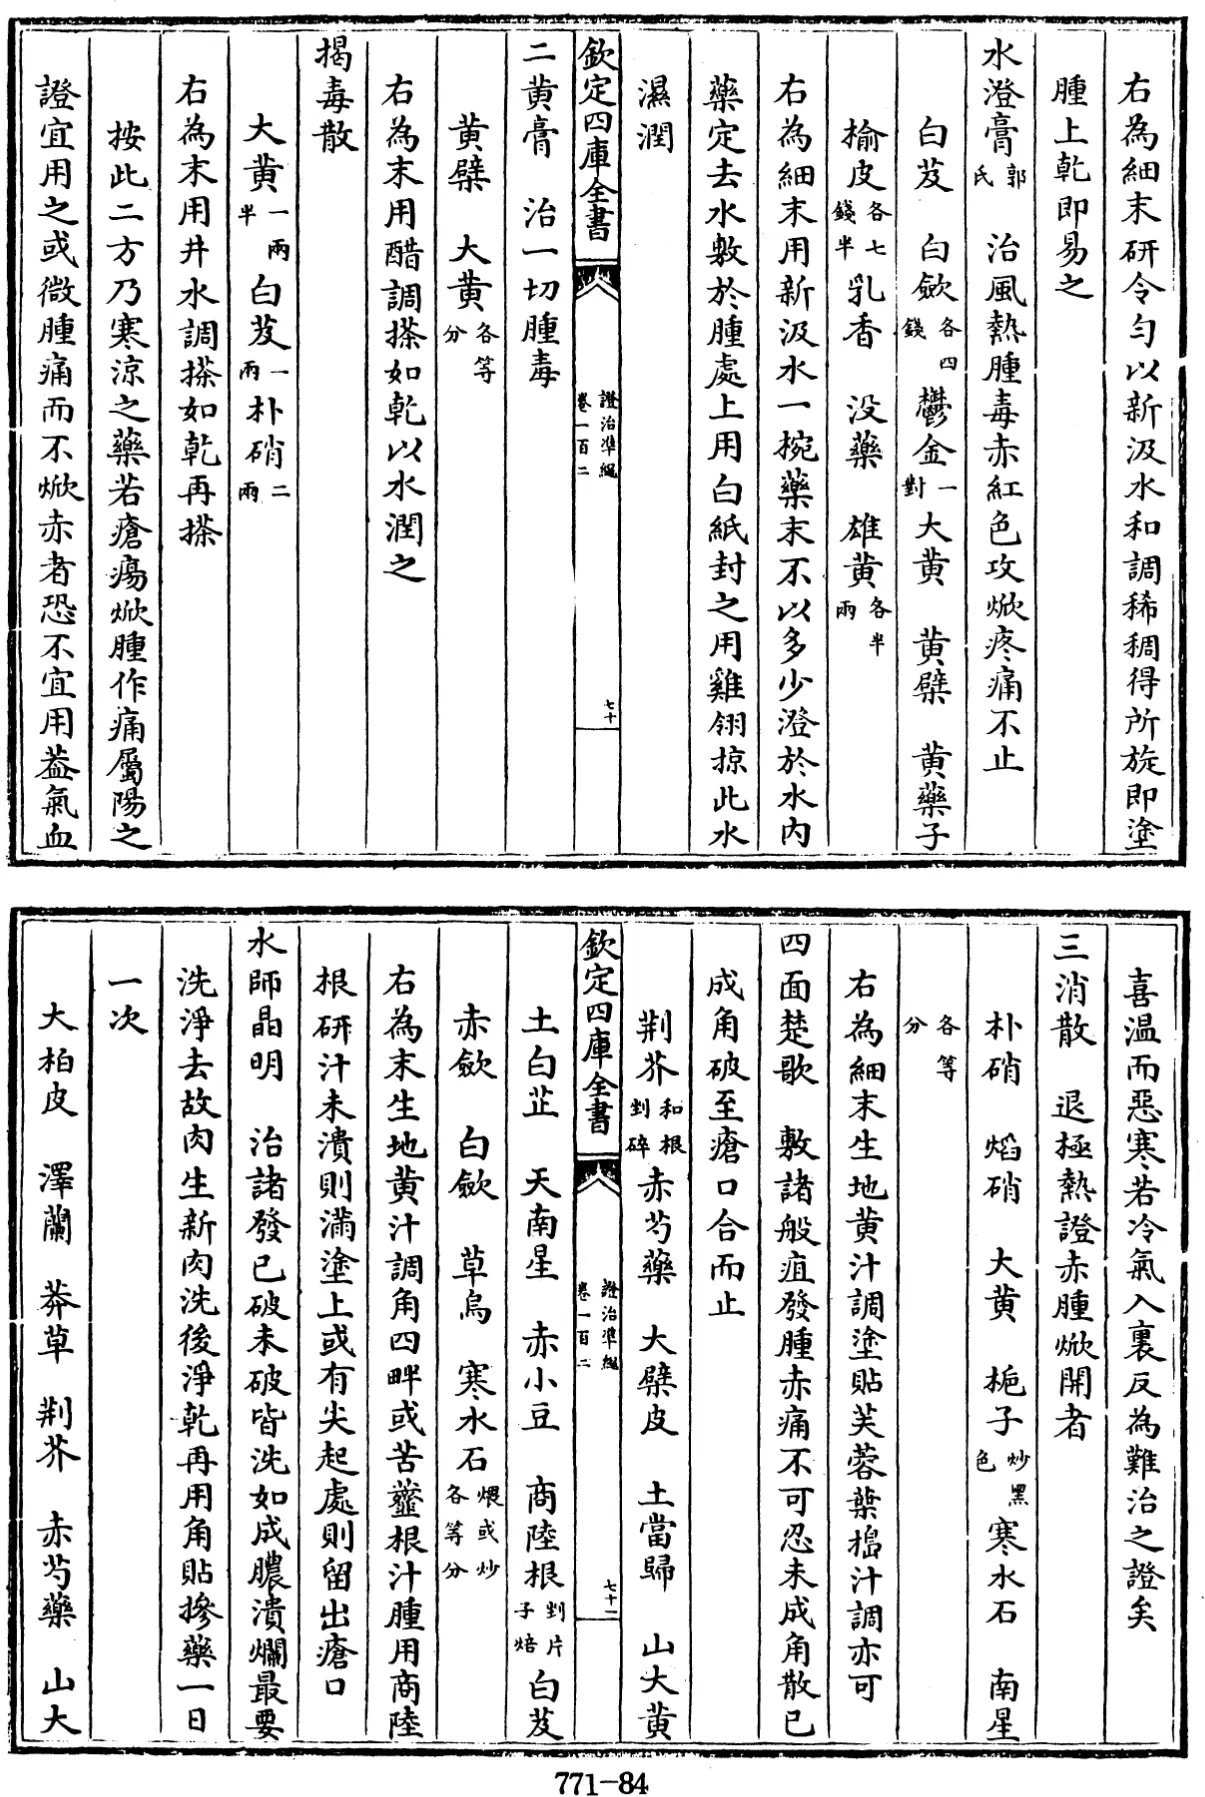 右為細末研令匀以新汲水和調稀稠得所旋即塗
腫上乾即易之
水澄膏郭氏　治風熱腫毒赤紅色攻焮疼痛不止
白芨　白歛各四錢　鬱金一對　大黄　黄檗　黄藥子
榆皮各七錢半　乳香　没藥　雄黄各半兩
右為細末用新汲水一椀藥末不以多少澄於水内
藥定去水敷於腫處上用白紙封之用雞翎掠此水
濕潤
欽定四庫全書
證治準繩
卷一百二
七十
二黄膏　治一切腫毒
黄檗　大黄各等分
右為末用醋調搽如乾以水潤之
揭毒散
大黄一兩半　白芨一兩　朴硝二兩
右為末用井水調搽如乾再搽
按此二方乃寒涼之藥若瘡瘍焮腫作痛屬陽之
證宜用之或微腫痛而不焮赤者恐不宜用葢氣血
喜温而惡寒若冷氣入裏反為難治之證矣
三消散　退極熱證赤腫焮開者
朴硝　焰硝　大黄　梔子炒黑色　寒水石　南星
各等分
右為細末生地黄汁調塗貼芙蓉葉搗汁調亦可
四面楚歌　敷諸般疽發腫赤痛不可忍未成角散已
成角破至瘡口合而止
荆芥和根剉碎　赤芍藥　大檗皮　土當歸　山大黄
欽定四庫全書
證治準繩
卷一百二
七十一
土白芷　天南星　赤小豆　商陸根剉片子焙　白芨
赤歛　白歛　草烏　寒水石煨或炒各等分
右為末生地黄汁調角四畔或苦虀根汁腫用商陸
根研汁未潰則滿塗上或有尖起處則留出瘡口
水師晶明　治諸發已破未破皆洗如成膿潰爛最要
洗淨去故肉生新肉洗後淨乾再用角貼摻藥一日
一次
大柏皮　澤蘭　莽草　荆芥　赤芍藥　山大
771-84